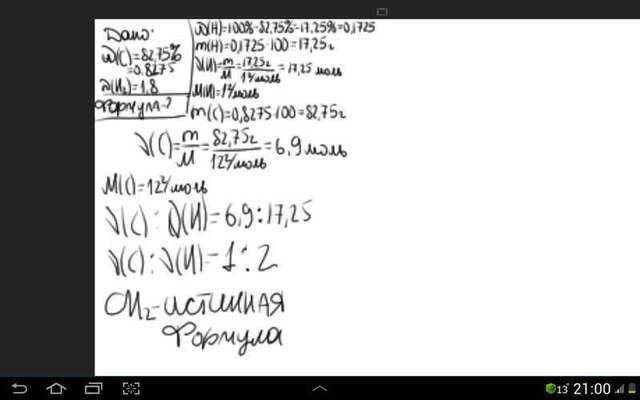 Дано:
ω(C)=82,75%
=0,8275
D(H₂)=1,8
Формула-?
ω(H)=100%-82,75%=17,25%=0,1725
m(H)=0,1725·100=17,25г
ν(H)=m/M=17,25г/1г/моль=17,25 моль
M(H)=1г/моль
m(C)=0,8275·100=82,75г
ν(C)=m/M=82,75г/12г/моль=6,9моль
M(C)=12г/моль
ν(C):ν(H)=6,9:17,25
ν(C):ν(H)=1:2
CH₂-истинная
формула
13
21:00